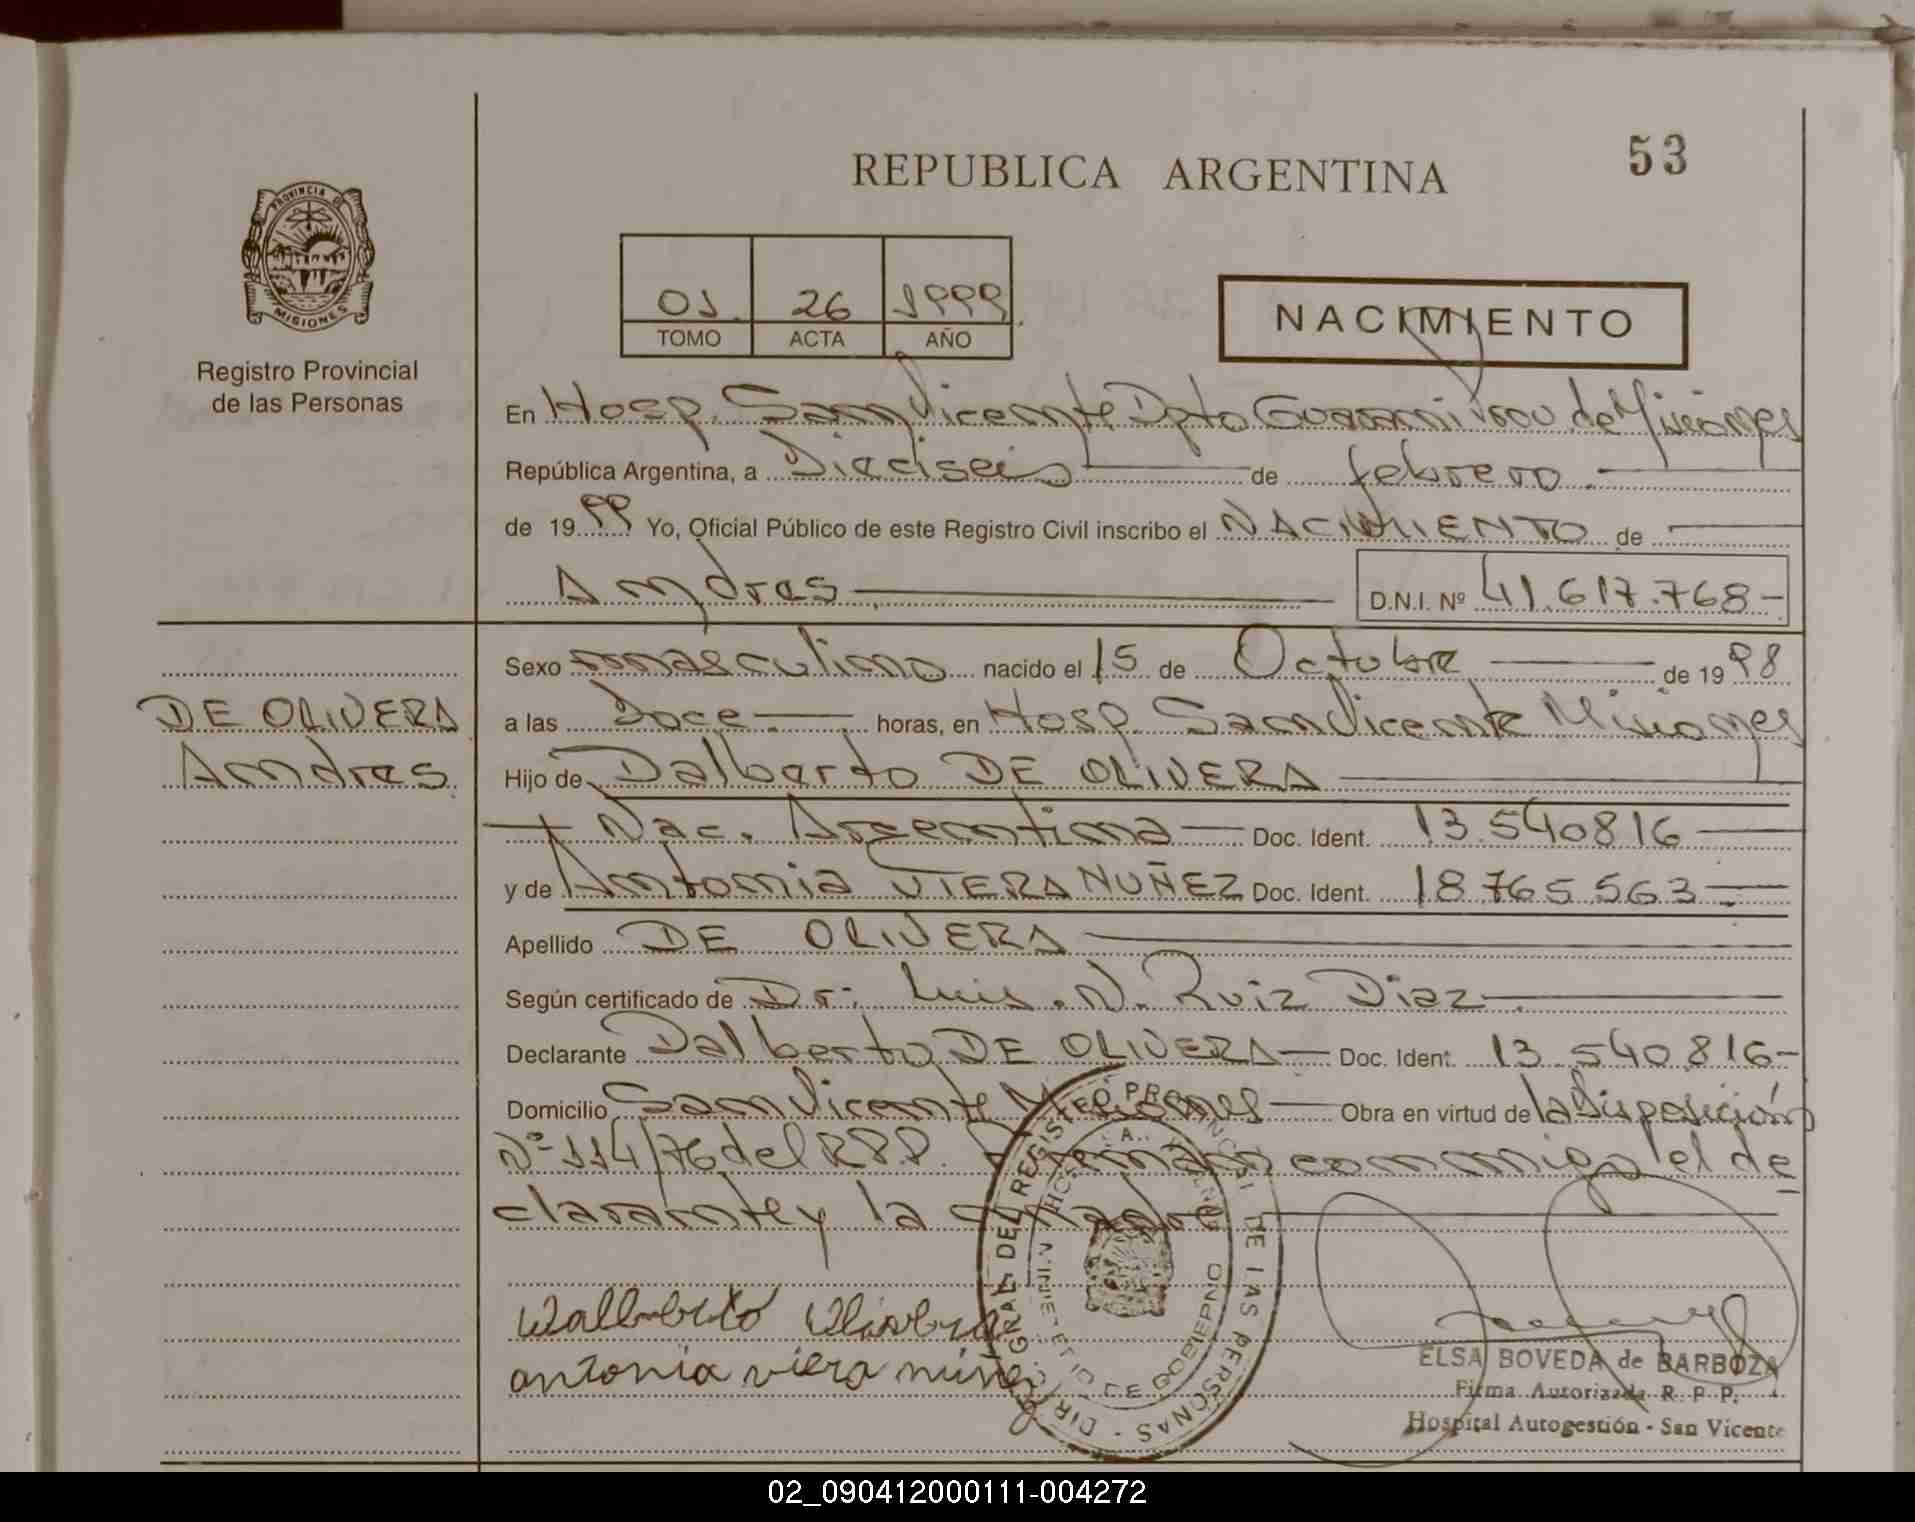 53
REPUBLICA ARGENTINA
PROVINCIA DE
MISIONES
Registro Provincial
de las Personas
01 26 1999
TOMO ACTA AÑO
NACIMIENTO
En Hosp. San Vicente Dpto Guarani Prov. de Misiones
República Argentina, a Dieciseis de febrero
de 1999 Yo, Oficial Público de este Registro Civil inscribo el NACIMIENTO de
Andres D.N.I. Nº 41.617.768-
Sexo masculino nacido el 15 de Octubre de 1998
DE OLIVERA
Andres
a las Doce horas, en Hosp. San Vicente Misiones
Hijo de Dalberto DE OLIVERA
Nac. Argentina Doc. Ident. 13.540816
y de Antonia VIERA NUÑEZ Doc. Ident. 18.765.563
Apellido DE OLIVERA
Según certificado de Dr. Luis. N. Ruiz Diaz
Declarante Dalberto DE OLIVERA Doc. Ident. 13.540.816-
Domicilio San Vicente Misiones Obra en virtud de la Disposición
Nº 114/76 del R.P.P. Firmando conmigo el de
clarante y la madre
antonia viera nuñez
DIR. GRAL DEL REGISTRO PROVINCIAL DE LAS PERSONAS
DE GOBIERNO
ELSA BOVEDA de BARBOZA
Firma Autorizada R. P. P.
Hospital Autogestión - San Vicente
02_090412000111-004272